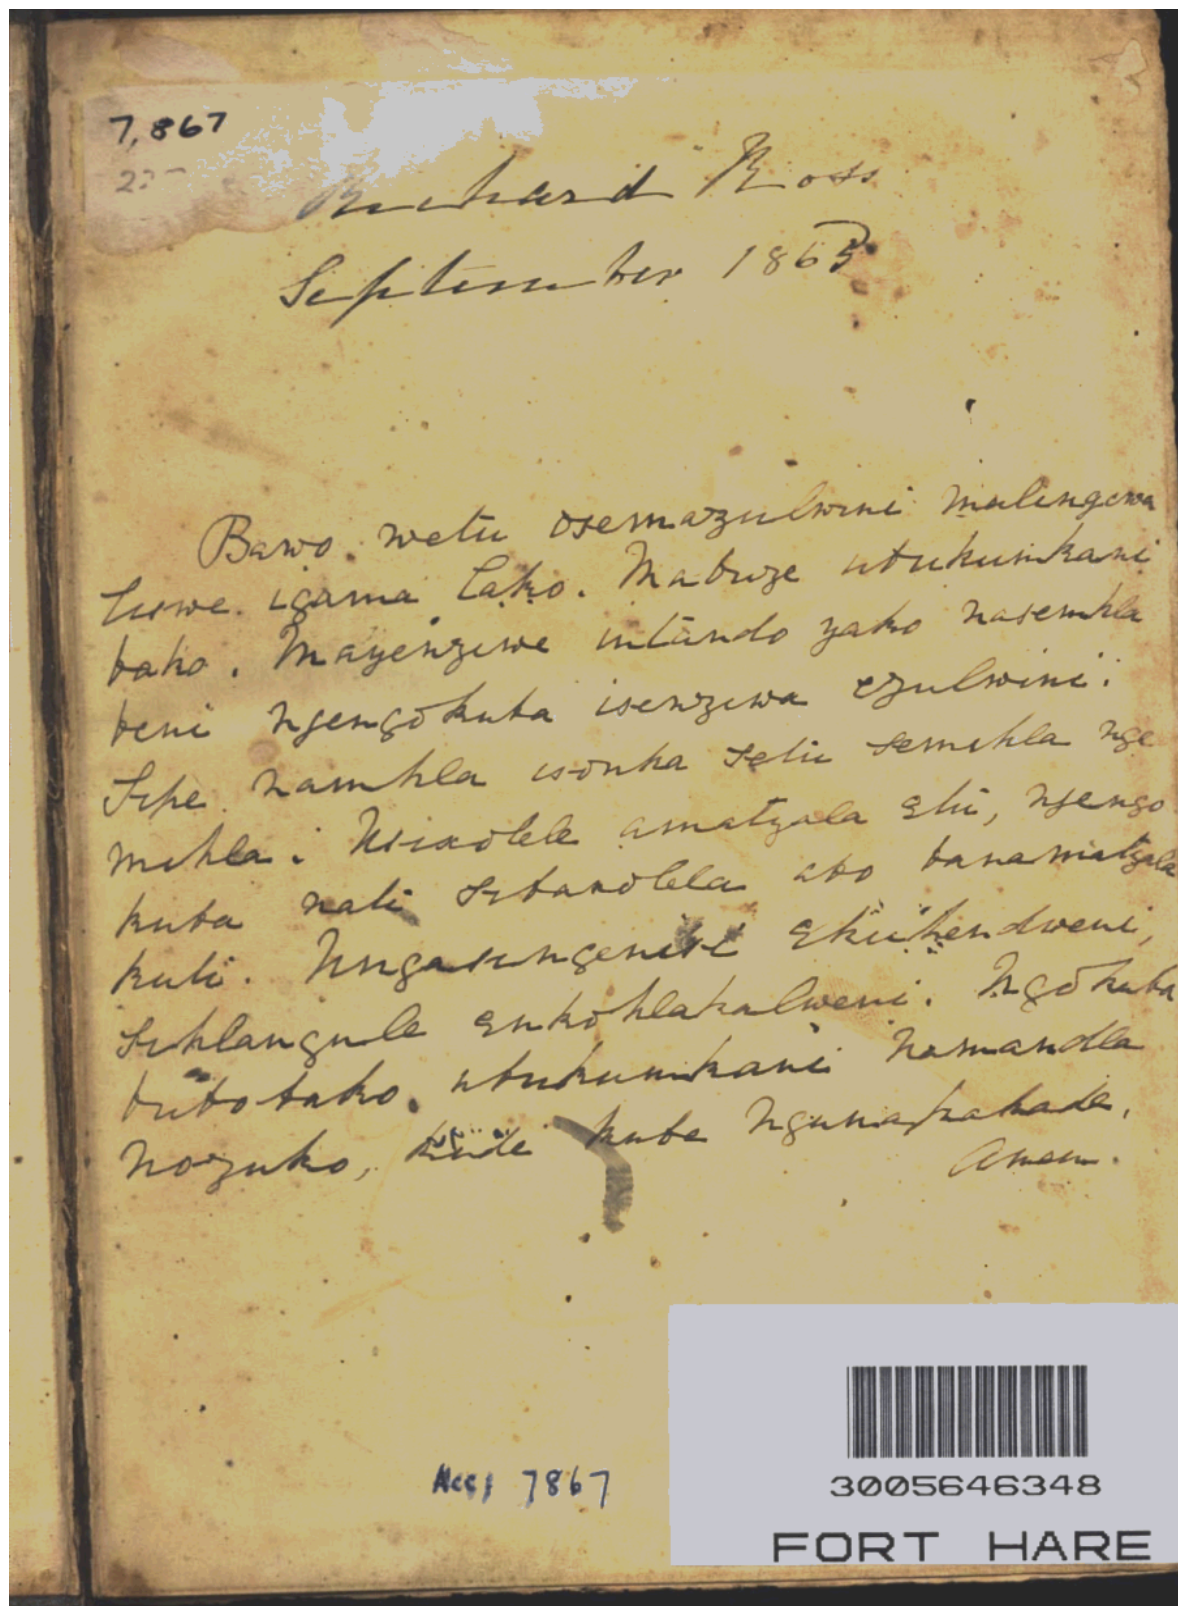 7,867
Richard Ross
September 1863
Bawo wetu osemazulwini malingcwa
liswe igama lako. Mabuze ubukumkani
bako. Mayenziwe intando yako nasemhla
beni njengokuba isenziwa ezulwini.
Sipe namhla isonka setu semihla nge
mihla. Usixolele amatyala etu, njengo
kuba nati sibaxolela abo banamatyala
kuti. Ungasingenisi ekuhendweni,
sihlangule enkohlakalweni. Ngokuba
bubobako ubukumkani namandla
nozuko, kude kube ngunapakade.
Amen.
Acc, 7867
3005646348
FORT HARE